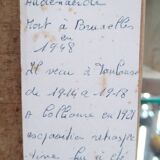 Audenaerde
Mort à Bruxelles
en
1948
Il vecu à Toulouse
de 1914 à 1918
à Collioure en 1921
exposition retrospec